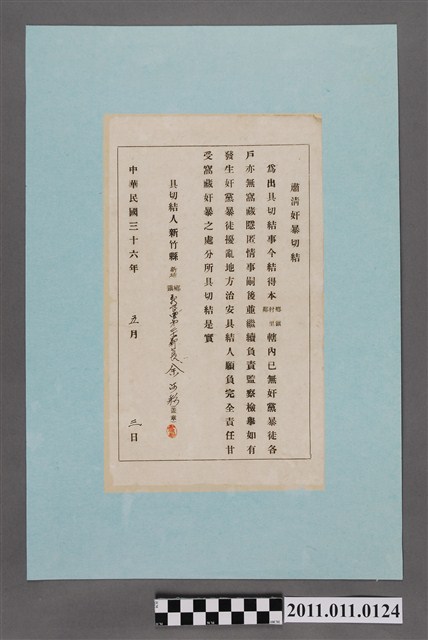 肅清奸暴切結
為出具切結事今結得本鄉鎮村里鄰轄內已無奸黨暴徒各
戶亦無窩藏隱匿情事嗣後並繼續負責監察檢舉如有
發生奸黨暴徒擾亂地方治安具結人願負完全責任甘
受窩藏奸暴之處分所具切結是實
具切結人新竹縣 鄉鎮 余 (蓋章)
中華民國三十六年 五月 三日
2011.011.0124